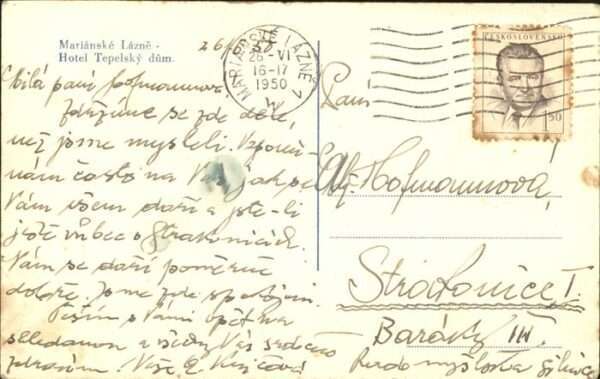 Mariánské Lázně -
Hotel Tepelský dům.
26/6 50.
MARIÁNSKÉ LÁZNĚ 1
26.-VI
16-17
1950
ČESKOSLOVENSKO
1.50
Milá paní Hofmannová!
Zdržíme se zde déle,
než jsme mysleli. Vzpomí-
nám často na Vás, jak se
Vám všem daří a jste-li
ještě vůbec v Strakonicích.
Nám se daří poměrně
dobře. Jsme zde spokojeni.
Těším s Vámi opět na
shledanou a všechny Vás srdečně
zdravím. Vaše
Paní
Hofmannová,
Strakonice I.
Baráky III